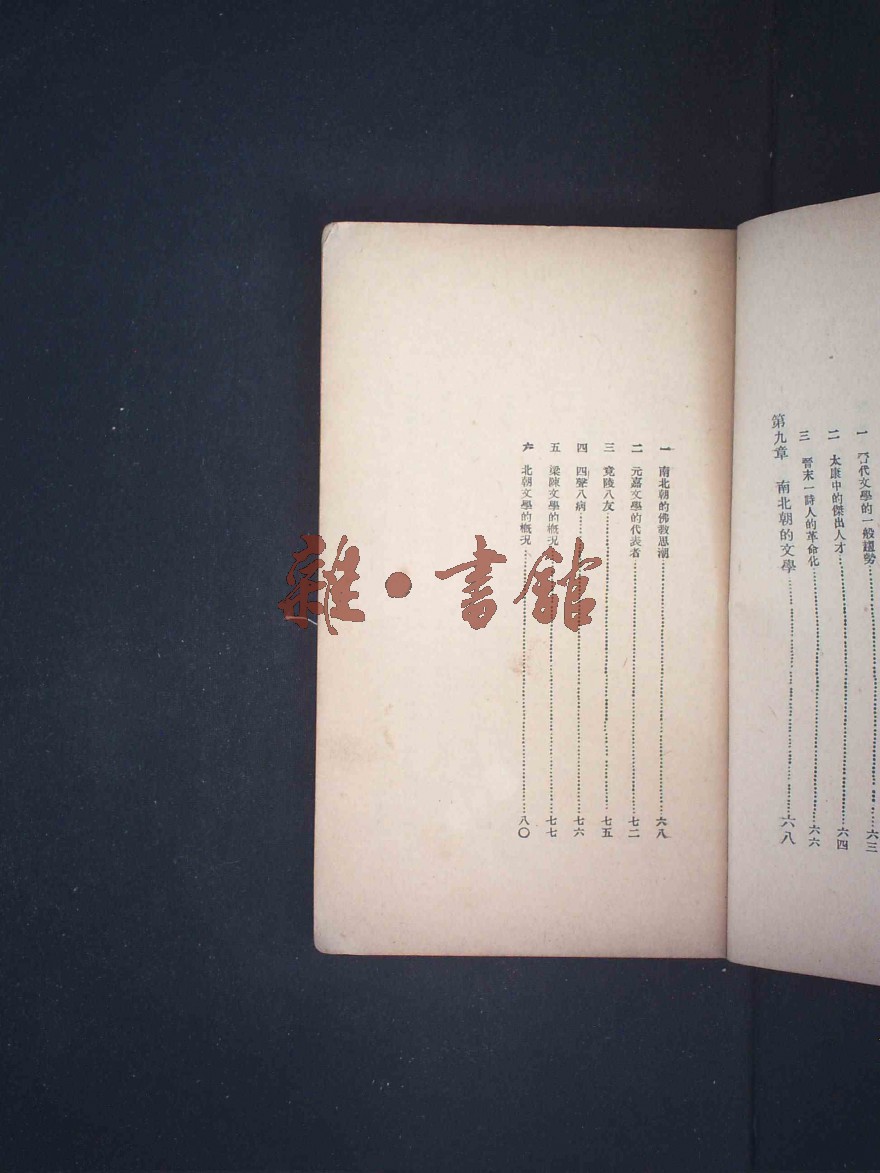 一 晉代文學的一般趨勢……六三
二 太康中的傑出人才……六四
三 晉末一詩人的革命化……六六
第九章 南北朝的文學……六八
一 南北朝的佛教思潮……六八
二 元嘉文學的代表者……七二
三 竟陵八友……七五
四 四聲八病……七六
五 梁陳文學的概況……七七
六 北朝文學的概況……八〇
雜·書館